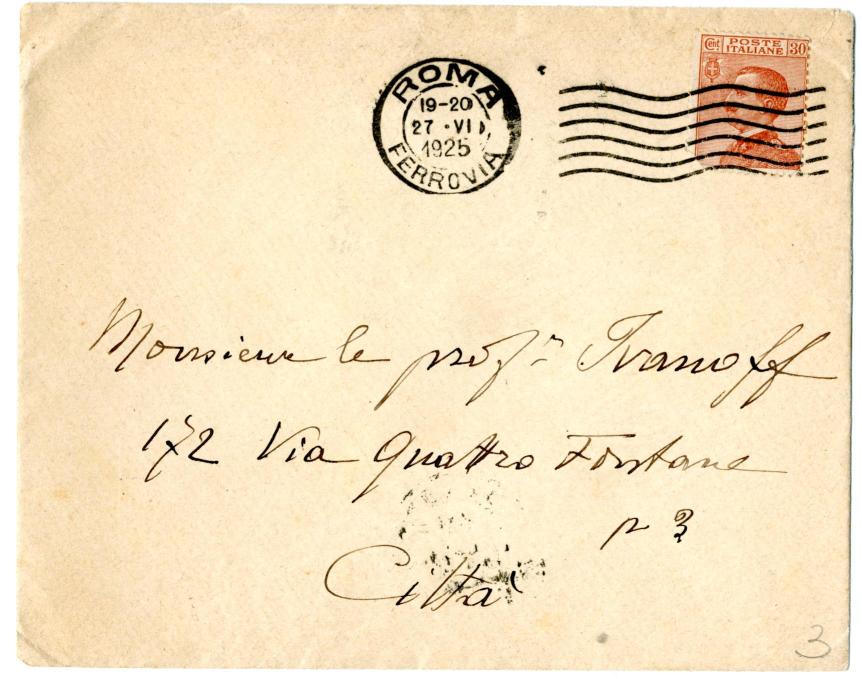 Cent POSTE ITALIANE 30
ROMA
19-20
27 · VI
1925
FERROVIA
Monsieur le profr Ivanoff
172 Via Quattro Fontane
p 3
Città
3